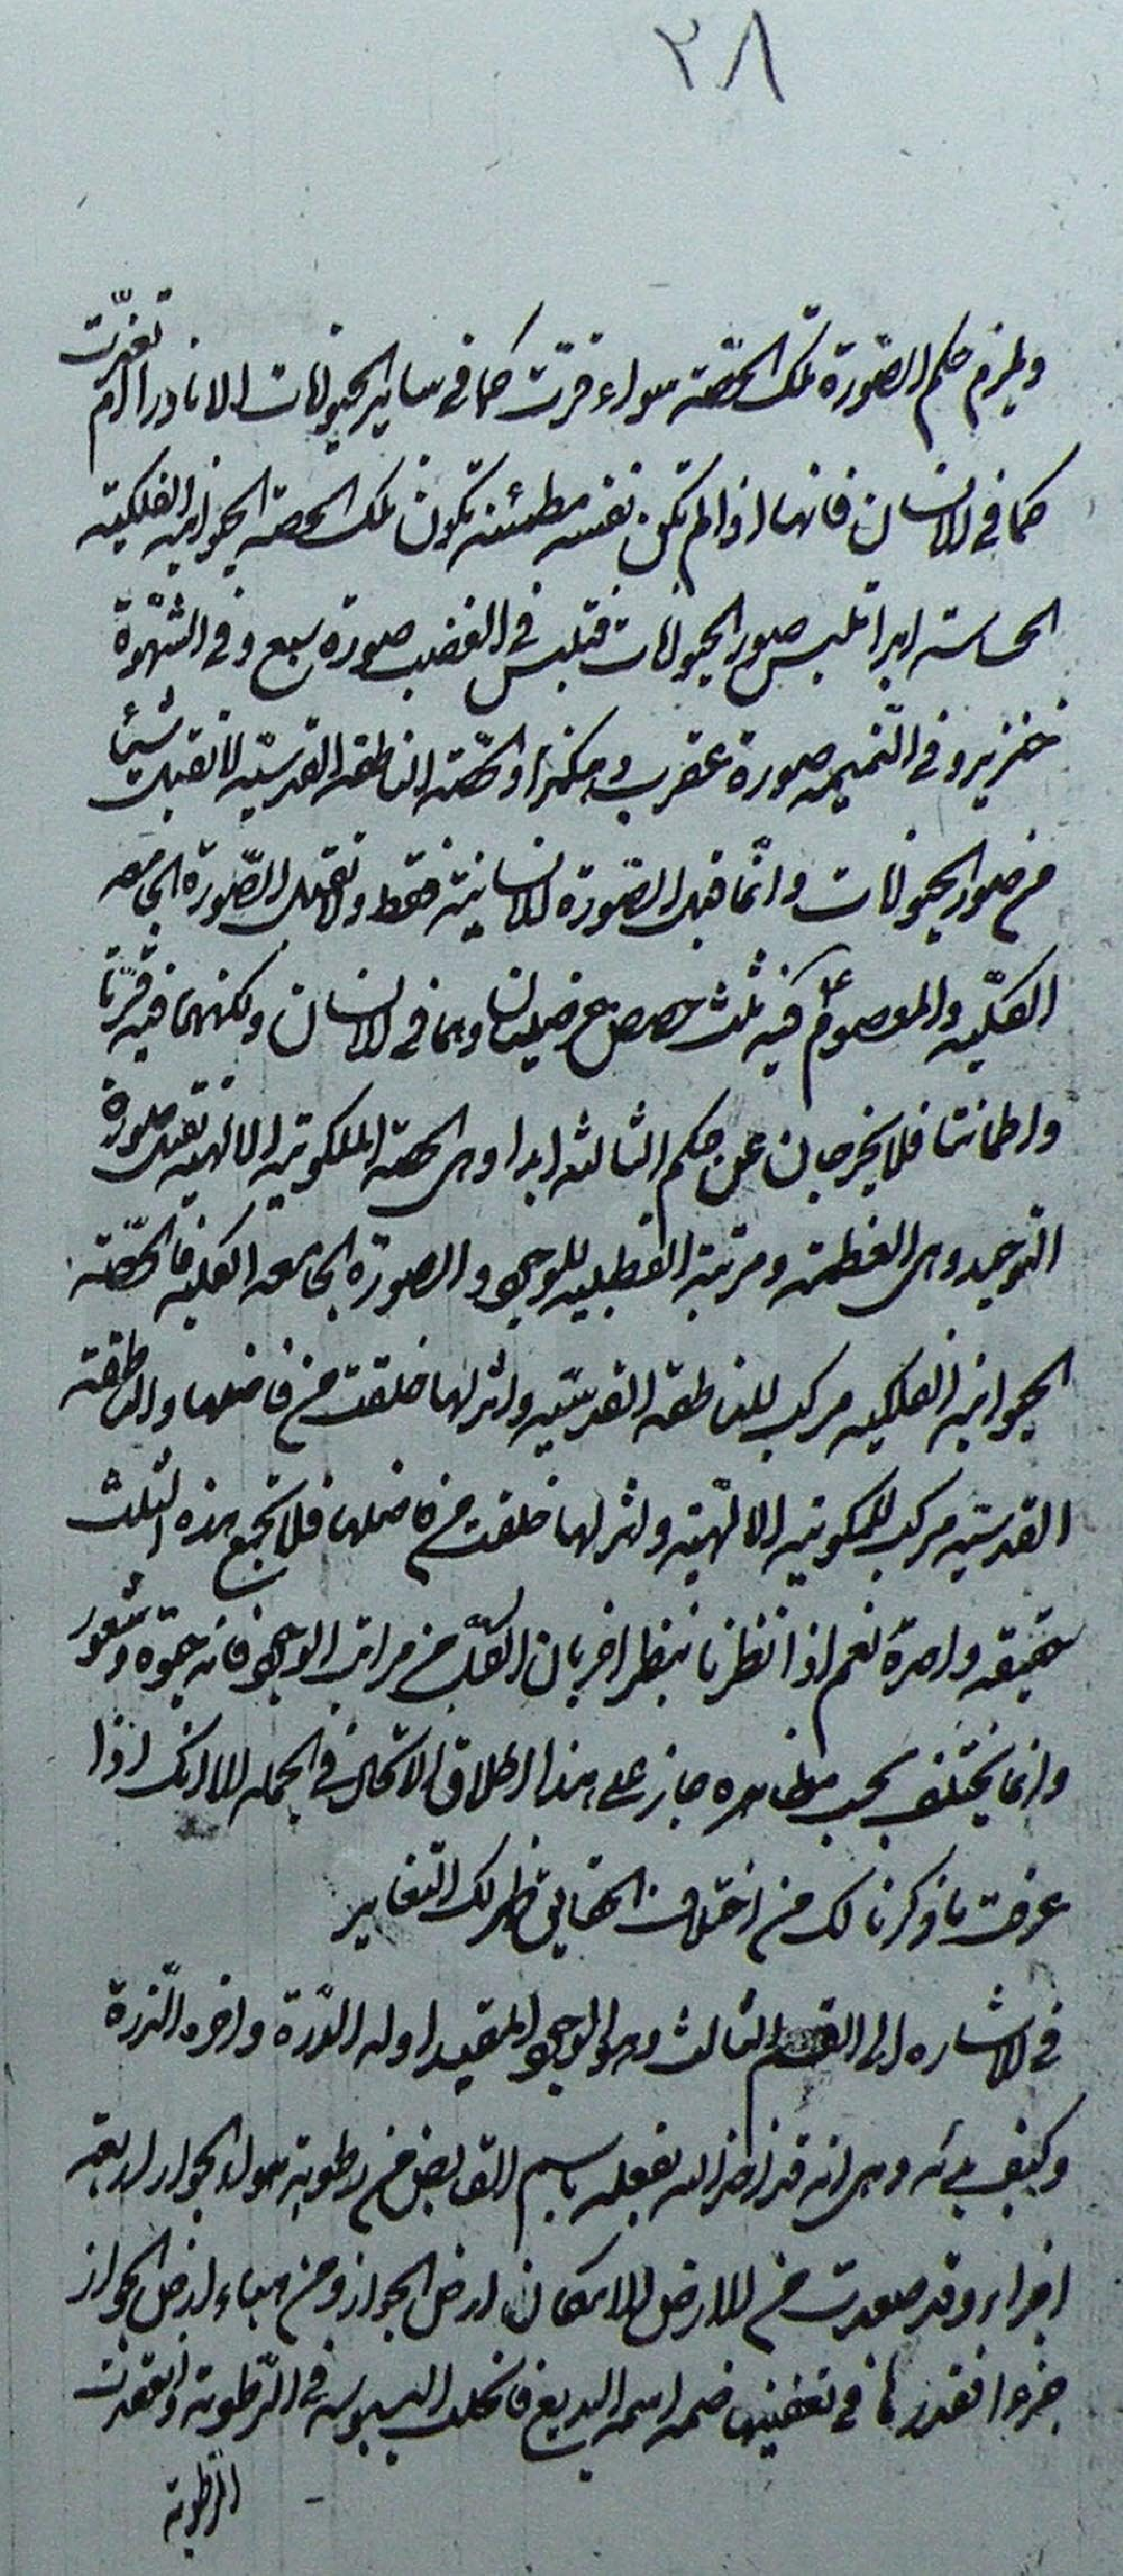 ٢٨
ويلزم حكم الصّورة تلك الحصّة سواء قرّت كما في ساير الحيوانات الا نادرا ام تغيّرت
كما في الانسان فانها اذا لم تكن نفسه مطمئنه تكون تلك الحصه الحيوانيه الفلكيته
الحساسه ابدا تلبس صور الحيوانات فتلبس في الغضب صورة سبع و في الشهوة
خنزير و في النّميمه صورة عقرب وهكذا والحصّه الناطقه القدسيّه لا تقبل شيئا
من صور الحيوانات وانّما تقبل الصّورة الانسانيّة فقط ولا تقبل الصّورة الجامعه
الكلّيه والمعصوم ع فيه ثلث حصص عرضيتان وهما في الانسان ولكنهما فيه قرّتا
واطمانتا فلا يخرجان عن حكم الثالثه ابدا وهى الحصه الملكوتيه الالهيه تقبل صورة
التوحيد وهى العظمة ومرتبة القطبيه للوجود والصورة الجامعه الكليه فالحصّه
الحيوانيه الفلكيه مركب للناطقه القدسيّه واثر لها خلقت من فاضلها والناطقة
القدسيّه مركب للملكوتيه الالهيّه واثر لها خلقت من فاضلها فلا تجمع هذه الثلث
حقيقه واحدة نعم اذا نظرنا بنظر اخر بان الكلّ من مراتب الوجود فانه حيوة وشعور
وانما يختلف بحسب مظاهره جاز على هذا اطلاق الاتحاد في الجمله الا انك اذا
عرفت ما ذكرنا لك من اختلاف الحقايق ظهر لك التغاير
في الاشاره الى القسم الثالث وهو الوجود المقيد اوله الدّرة واخره الذّرة
وكيف بدئه وهى انه قد اخذ الله بفعله باسم القابض من رطوبة هواء الجواز اربعه
اجزاء وقد صعدت من الارض الامكان ارض الجواز ومن هباء ارض الجواز
جزءا فقدرها في تعفينها ضمه اسمه البديع فانحلت اليبوسه في الرّطوبة وانعقدت
الرّطوبة